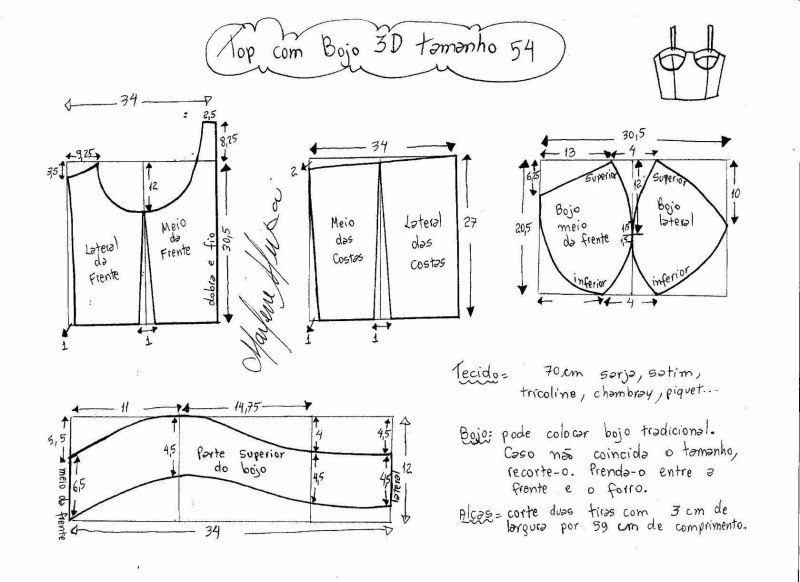 Top com Bojo 3D tamanho 54
34
2,5
9,25
3,5
8,25
12
Lateral
da
Frente
Meio
da
Frente
dobra e fio
30,5
1
1
Marlene Mukai
34
2
Meio
das
Costas
Lateral
das
Costas
27
1
1
30,5
13
4
6,5
Superior
12
Superior
10
20,5
Bojo
meio
da frente
Bojo
lateral
1,5
1,5
inferior
inferior
4
11
14,75
5,5
4,5
Parte Superior
do bojo
4
4,5
12
6,5
4,5
4,5
meio da frente
lateral
34
Tecido= 70cm sarja, satim,
tricoline, chambray, piquet...
Bojo: pode colocar bojo tradicional.
Caso não coincida o tamanho,
recorte-o. Prenda-o entre a
frente e o forro.
Alças= corte duas tiras com 3 cm de
largura por 59 cm de comprimento.